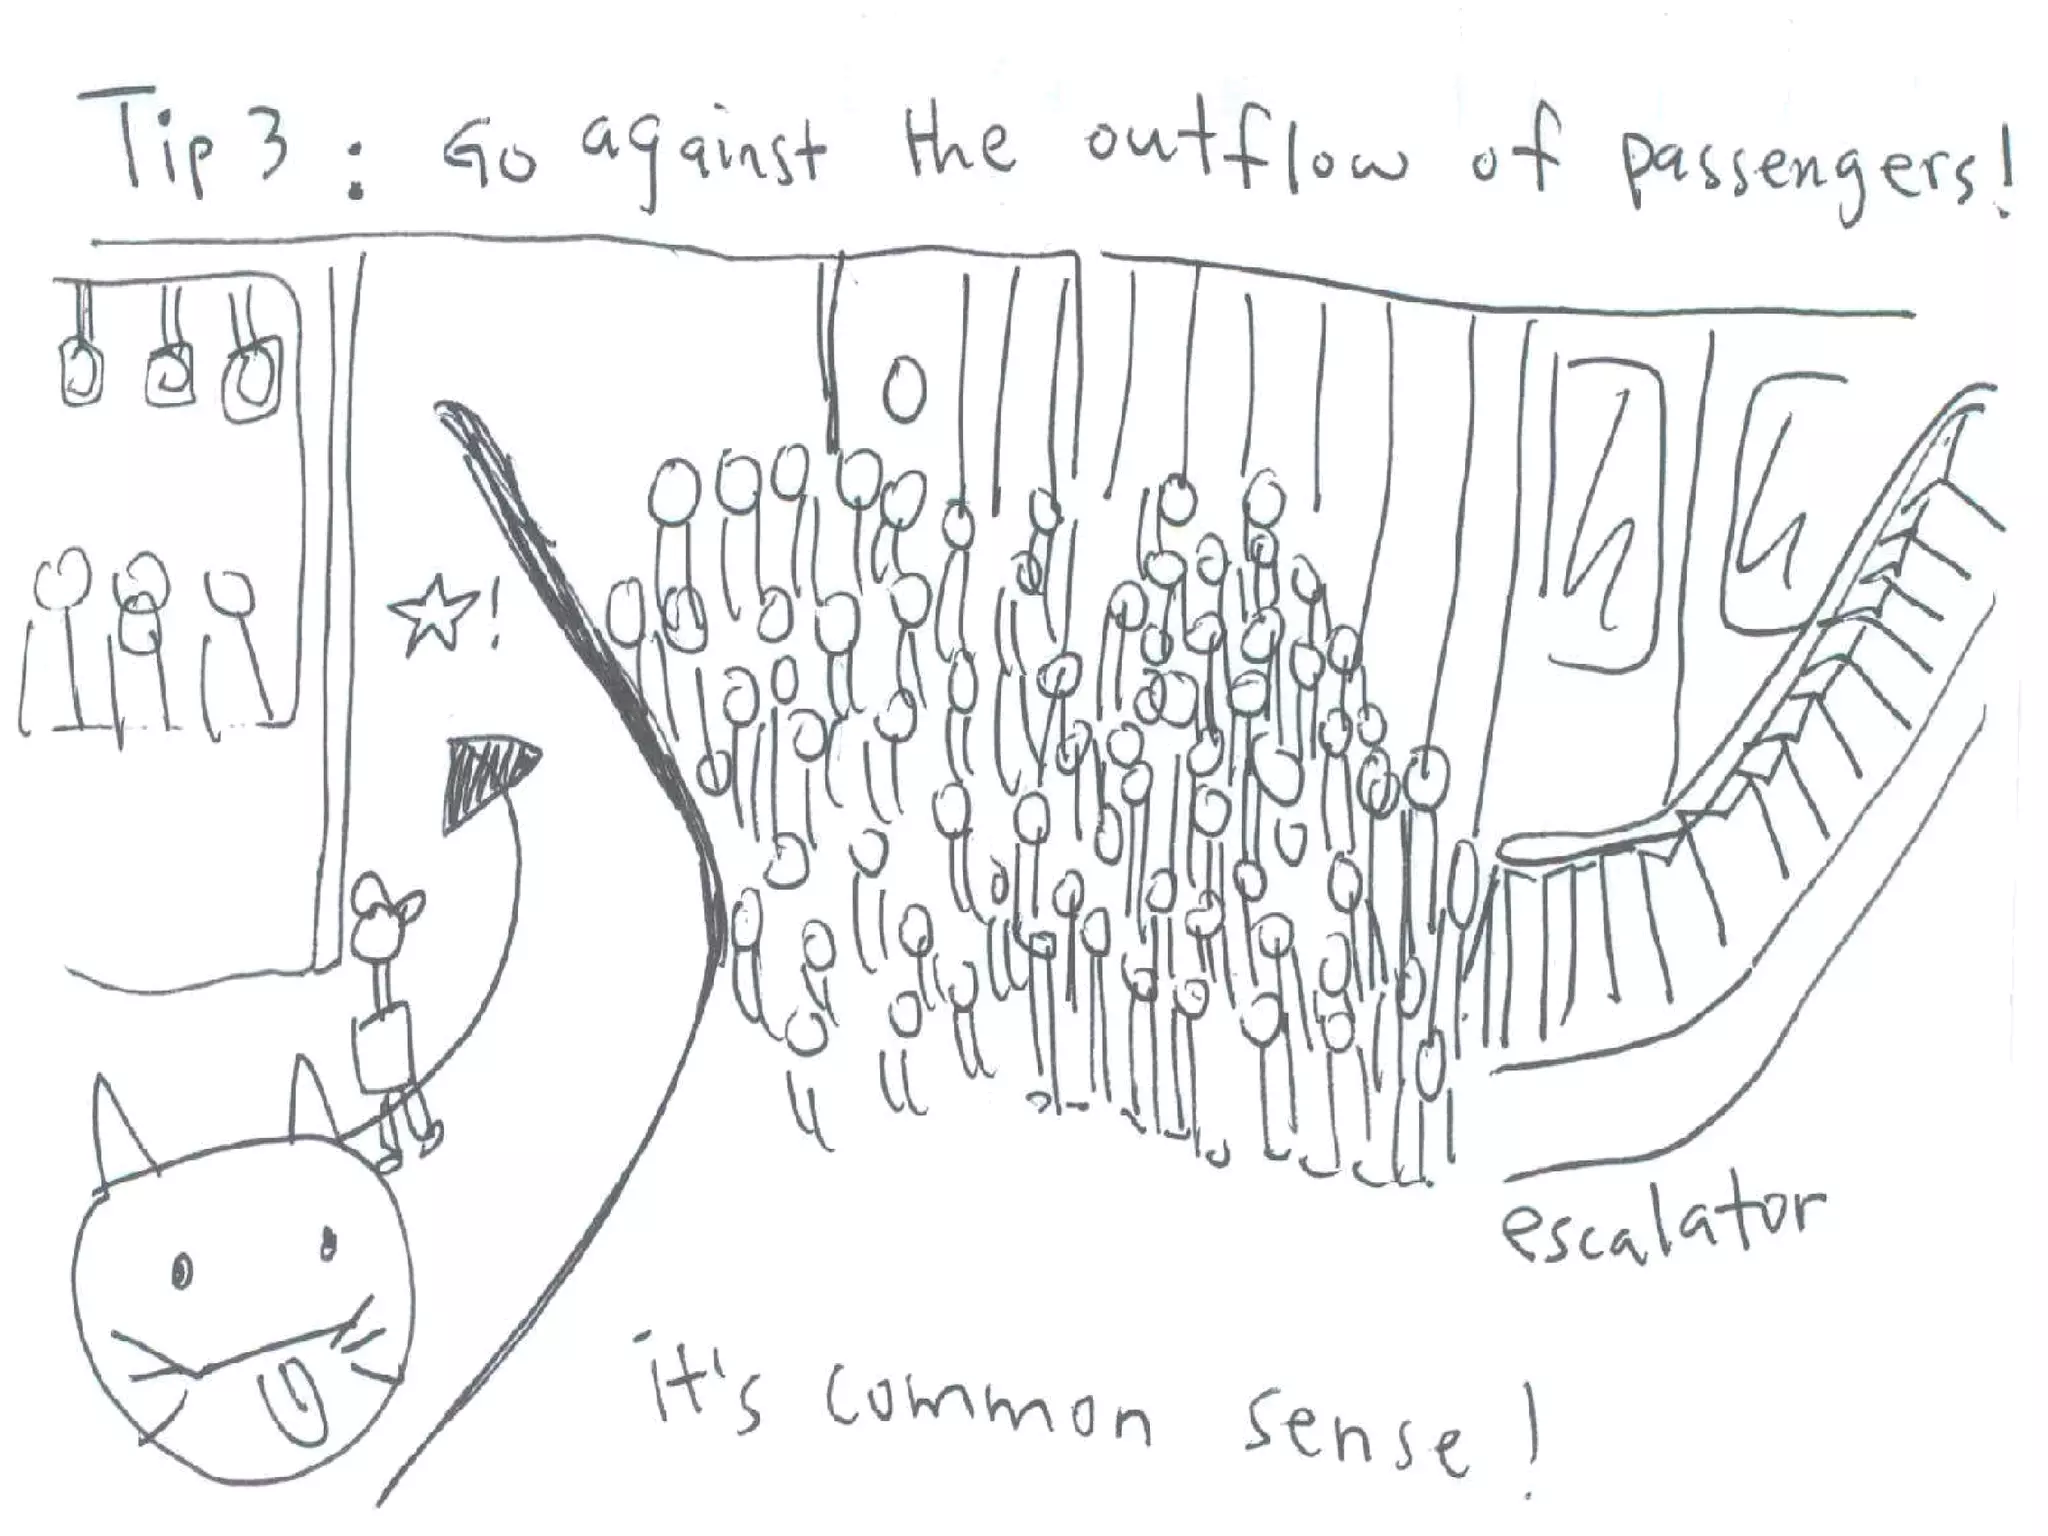 Tip 3: Go against the outflow of passengers!
!
escalator
it's common sense!